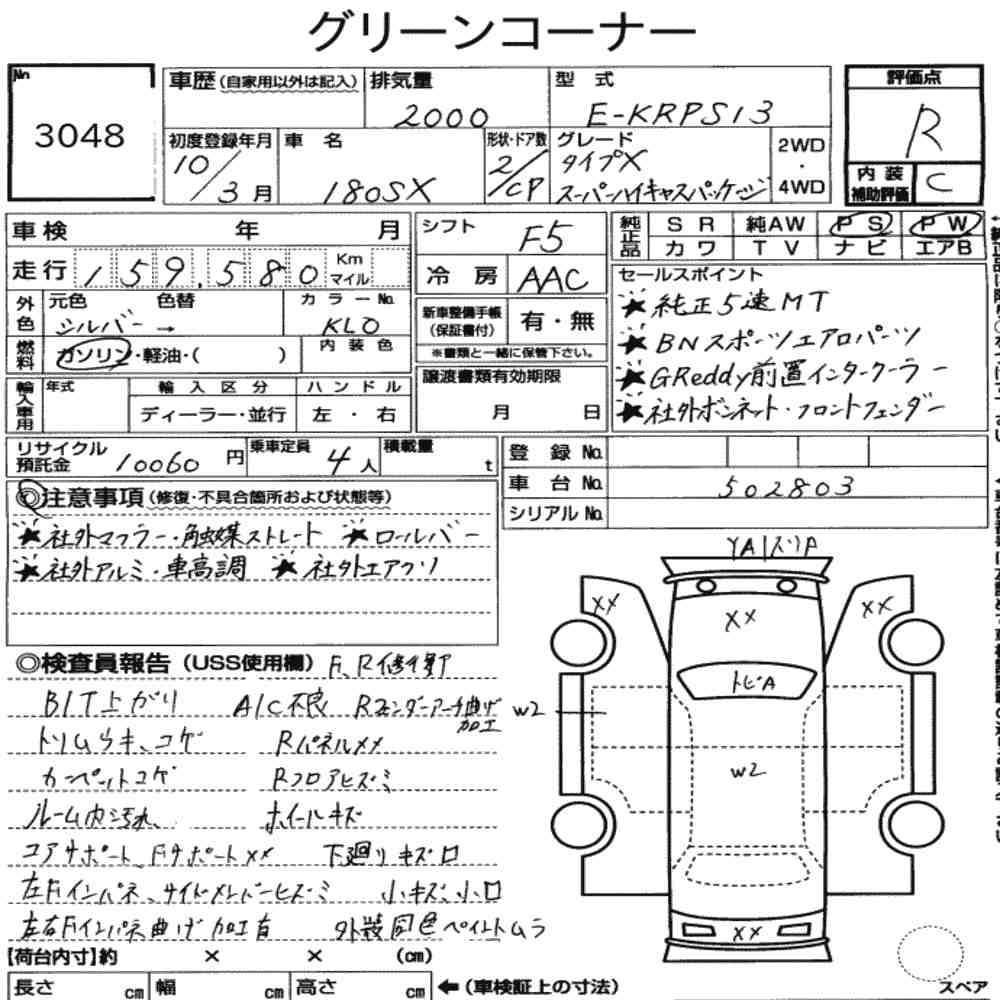 グリーンコーナー
No.
3048
車歴(自家用以外は記入)
排気量
2000
型式
E-KRPS13
評価点
R
内装補助評価
C
初度登録年月
10/3月
車名
180SX
形状・ドア数
2/CP
グレード
タイプX
スーパーハイキャスパッケッジ
2WD
・
4WD
車検 年 月
走行 159,580 Km マイル
外色
元色 色替
シルバー →
カラーNo.
KL0
燃料
ガソリン・軽油・( )
内装色
輸入車用
年式
輸入区分
ディーラー・並行
ハンドル
左・右
シフト
F5
冷房
AAC
新車整備手帳(保証書付)
有・無
※書類と一緒に保管下さい。
譲渡書類有効期限
月 日
純正品
SR 純AW PS PW
カワ TV ナビ エアB
セールスポイント
★純正5速MT
★BNスポーツエアロパーツ
★GReddy前置インタークーラー
★社外ボンネット・フロントフェンダー
リサイクル預託金 10060円
乗車定員 4人
積載量 t
登録No.
車台No. 502803
シリアルNo.
◎注意事項(修復・不具合箇所および状態等)
★社外マフラー・触媒ストレート ★ロールバー
★社外アルミ・車高調 ★社外エアクリ
◎検査員報告(USS使用欄) F、R修復
B/T上がり A/C不良 Rフェンダーアーチ曲げ加工
トリムウキ、コゲ RパネルXX
カーペットコゲ Rフロアヒズミ
ルーム内汚れ ホイールキズ
コアサポート、FサポートXX 下廻りキズロ
左Fインパネ、サイドメンバーヒズミ 小キズ、小ロ
左右Fインパネ曲げ加工有 外装同色ペイントムラ
XX
XX
XX
トビA
W2
W2
XX
【荷台内寸】約 × × (cm)
長さ cm 幅 cm 高さ cm ←(車検証上の寸法)
スペア